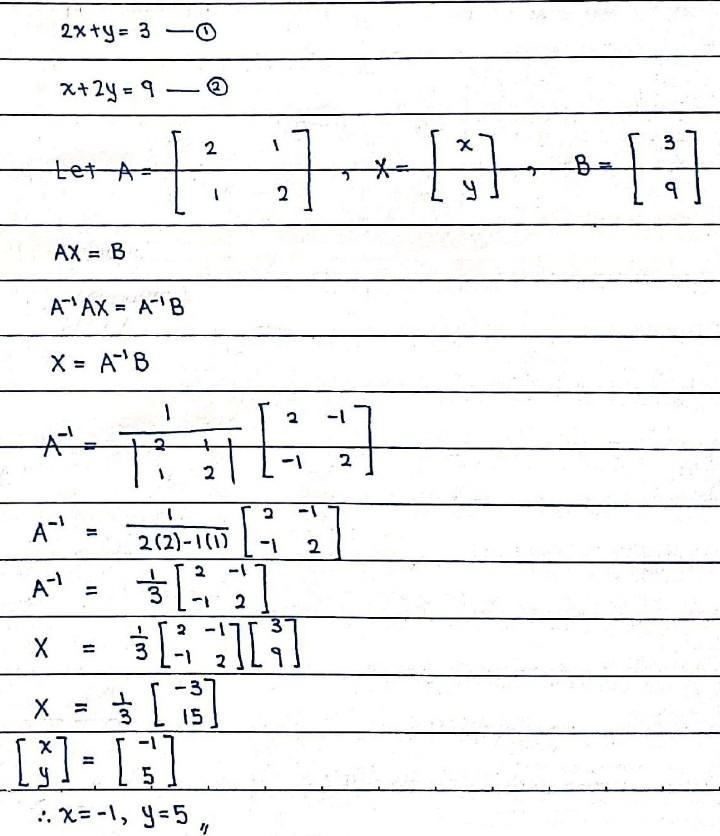 2x+y= 3 —①
x+2y = 9 — ②
Let A = [ 2 1 ; 1 2 ] , X = [ x ; y ] , B = [ 3 ; 9 ]
AX = B
A⁻¹AX = A⁻¹B
X = A⁻¹B
A⁻¹ = 1 / | 2 1 ; 1 2 | [ 2 -1 ; -1 2 ]
A⁻¹ = 1 / 2(2)-1(1) [ 2 -1 ; -1 2 ]
A⁻¹ = 1/3 [ 2 -1 ; -1 2 ]
X = 1/3 [ 2 -1 ; -1 2 ] [ 3 ; 9 ]
X = 1/3 [ -3 ; 15 ]
[ x ; y ] = [ -1 ; 5 ]
∴ x=-1, y=5 〃